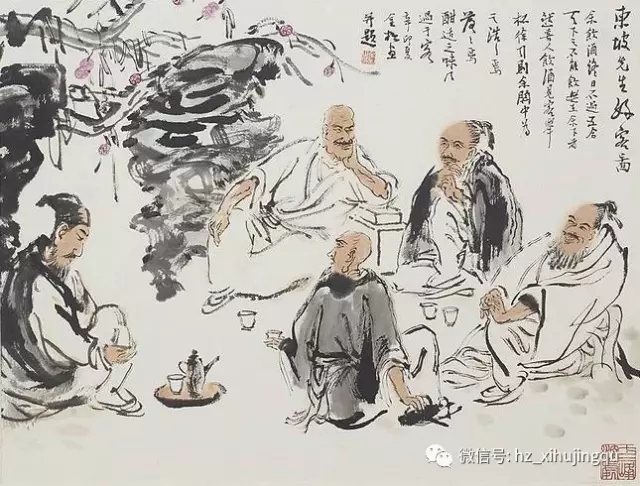 東坡先生好客圖
余飲酒終日不過五合
天下之不能飲無在余下者
然喜人飲酒見客舉
杯徐引則余胸中為
之浩浩焉
落落焉
酣適之味乃
過于客
辛卯夏
并題
微信号: hz_xihujingqu